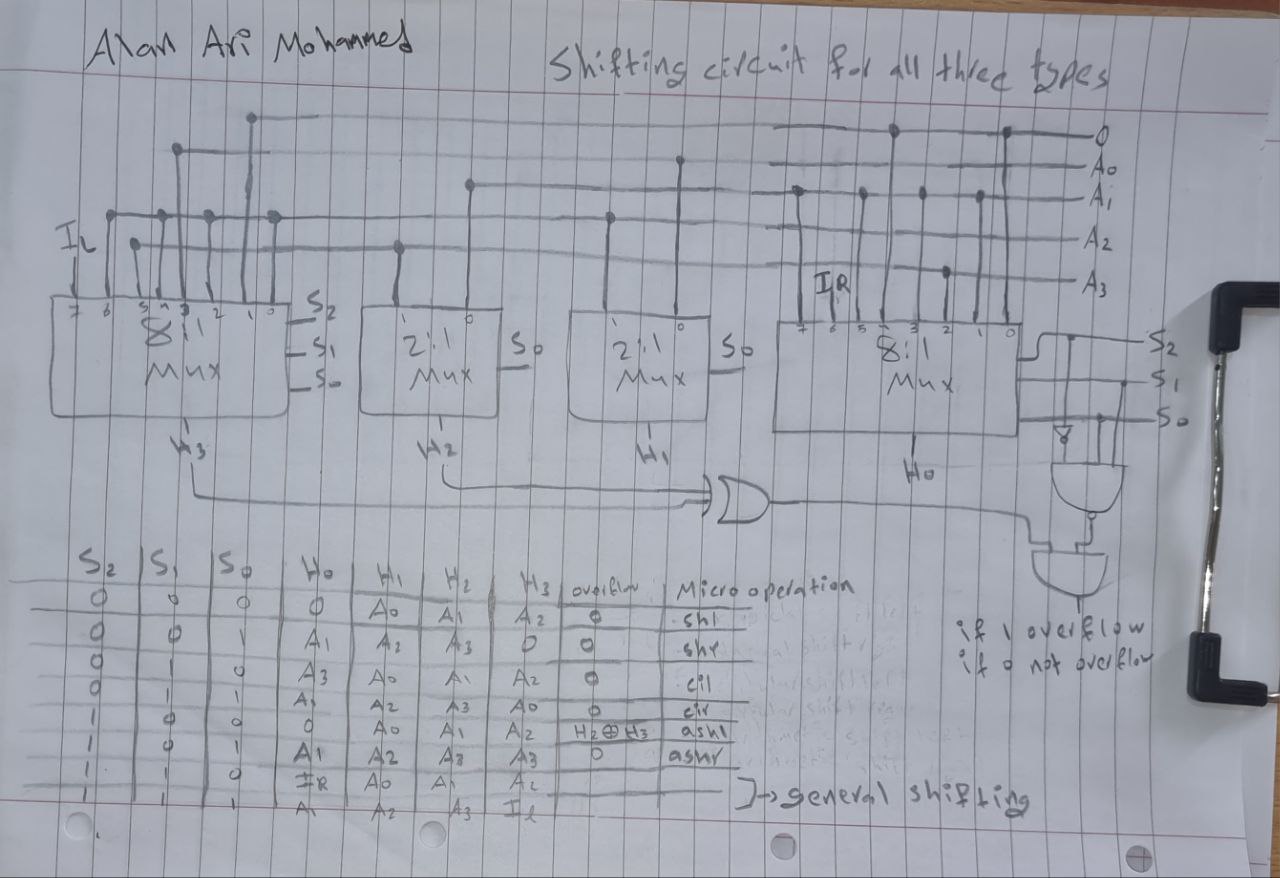 Alan Ari Mohammed
Shifting circuit for all three types
0
A0
A1
A2
A3
IL
7 6 5 4 3 2 1 0
8:1
Mux
S2
S1
S0
H3
1 0
2:1
Mux
S0
H2
1 0
2:1
Mux
S0
H1
IR
7 6 5 4 3 2 1 0
8:1
Mux
S2
S1
S0
H0
if 1 overflow
if 0 not overflow
S2 S1 S0 H0 H1 H2 H3 overflow Micro operation
0 0 0 0 A0 A1 A2 0 shl
0 0 1 A1 A2 A3 0 0 shr
0 1 0 A3 A0 A1 A2 0 cil
0 1 1 A1 A2 A3 A0 0 cir
1 0 0 0 A0 A1 A2 H2⊕H3 ashl
1 0 1 A1 A2 A3 A3 0 ashr
1 1 0 IR A0 A1 A2
1 1 1 A1 A2 A3 Il
]→ general shifting